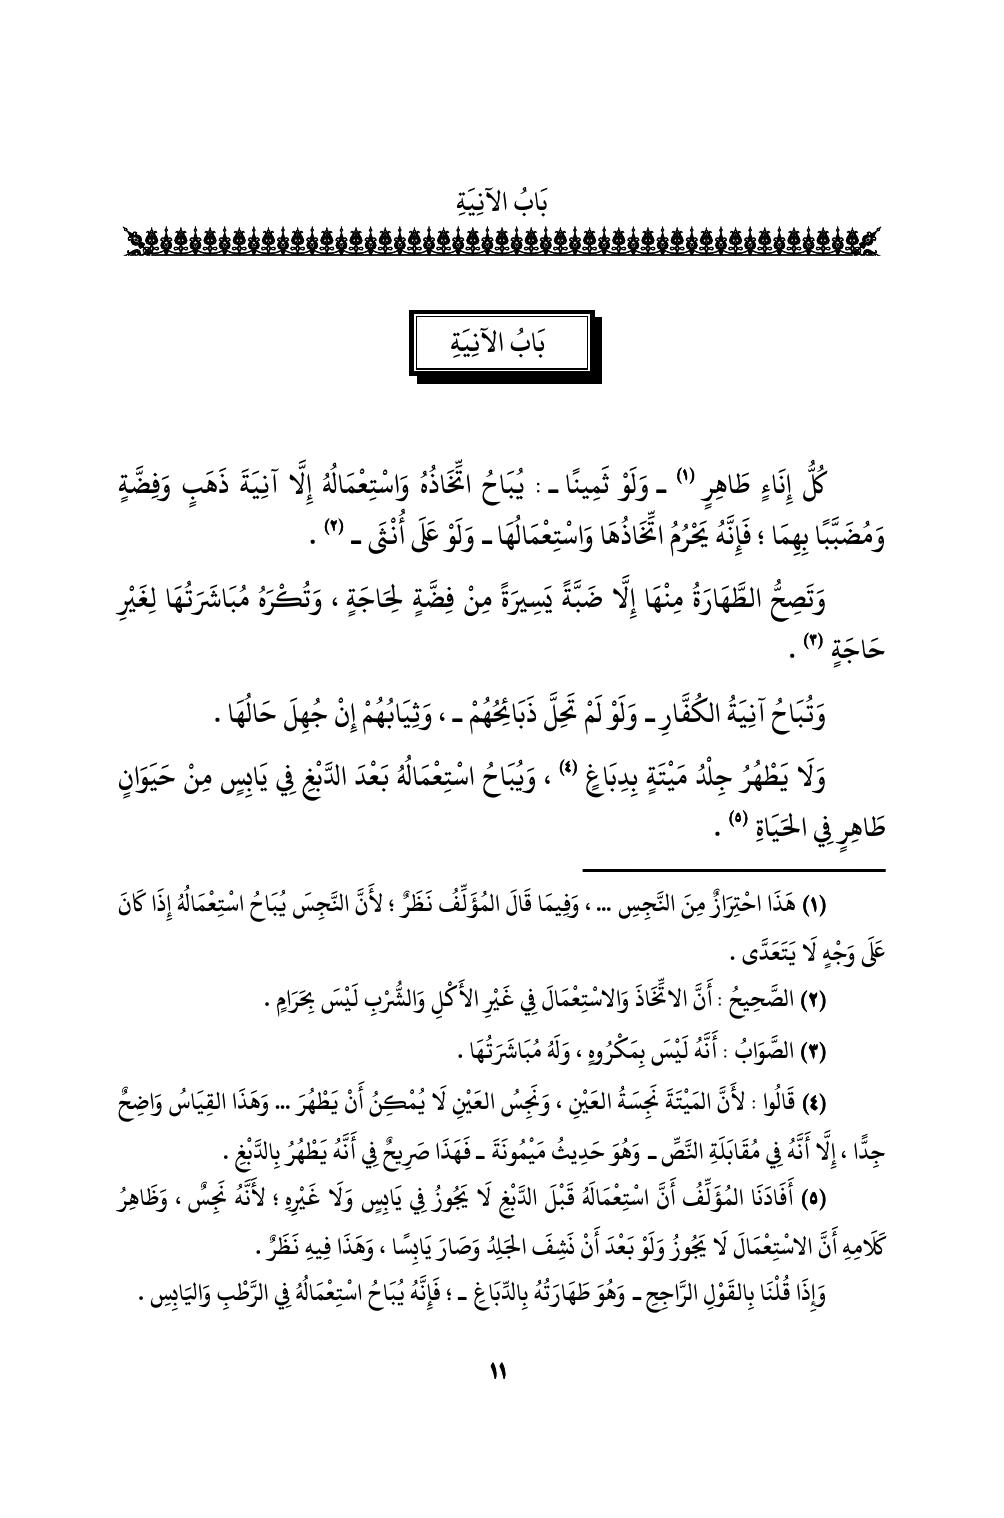 بَابُ الآنِيَةِ
بَابُ الآنِيَةِ
كُلُّ إِنَاءٍ طَاهِرٍ (١) ـ وَلَوْ ثَمِينًا ـ : يُبَاحُ اتِّخَاذُهُ وَاسْتِعْمَالُهُ إِلَّا آنِيَةَ ذَهَبٍ وَفِضَّةٍ
وَمُضَبَّبًا بِهِمَا ؛ فَإِنَّهُ يَحْرُمُ اتِّخَاذُهَا وَاسْتِعْمَالُهَا ـ وَلَوْ عَلَى أُنْثَى ـ (٢) .
وَتَصِحُّ الطَّهَارَةُ مِنْهَا إِلَّا ضَبَّةً يَسِيرَةً مِنْ فِضَّةٍ لِحَاجَةٍ ، وَتُكْرَهُ مُبَاشَرَتُهَا لِغَيْرِ
حَاجَةٍ (٣) .
وَتُبَاحُ آنِيَةُ الكُفَّارِ ـ وَلَوْ لَمْ تَحِلَّ ذَبَائِحُهُمْ ـ ، وَثِيَابُهُمْ إِنْ جُهِلَ حَالُهَا .
وَلَا يَطْهُرُ جِلْدُ مَيْتَةٍ بِدِبَاغٍ (٤) ، وَيُبَاحُ اسْتِعْمَالُهُ بَعْدَ الدَّبْغِ فِي يَابِسٍ مِنْ حَيَوَانٍ
طَاهِرٍ فِي الحَيَاةِ (٥) .
(١) هَذَا احْتِرَازٌ مِنَ النَّجِسِ ... ، وَفِيمَا قَالَ المُؤَلِّفُ نَظَرٌ ؛ لأَنَّ النَّجِسَ يُبَاحُ اسْتِعْمَالُهُ إِذَا كَانَ
عَلَى وَجْهٍ لَا يَتَعَدَّى .
(٢) الصَّحِيحُ : أَنَّ الاتِّخَاذَ وَالاسْتِعْمَالَ فِي غَيْرِ الأَكْلِ وَالشُّرْبِ لَيْسَ بِحَرَامٍ .
(٣) الصَّوَابُ : أَنَّهُ لَيْسَ بِمَكْرُوهٍ ، وَلَهُ مُبَاشَرَتُهَا .
(٤) قَالُوا : لأَنَّ المَيْتَةَ نَجِسَةُ العَيْنِ ، وَنَجِسُ العَيْنِ لَا يُمْكِنُ أَنْ يَطْهُرَ ... وَهَذَا القِيَاسُ وَاضِحٌ
جِدًّا ، إِلَّا أَنَّهُ فِي مُقَابَلَةِ النَّصِّ ـ وَهُوَ حَدِيثُ مَيْمُونَةَ ـ فَهَذَا صَرِيحٌ فِي أَنَّهُ يَطْهُرُ بِالدَّبْغِ .
(٥) أَفَادَنَا المُؤَلِّفُ أَنَّ اسْتِعْمَالَهُ قَبْلَ الدَّبْغِ لَا يَجُوزُ فِي يَابِسٍ وَلَا غَيْرِهِ ؛ لأَنَّهُ نَجِسٌ ، وَظَاهِرُ
كَلَامِهِ أَنَّ الاسْتِعْمَالَ لَا يَجُوزُ وَلَوْ بَعْدَ أَنْ نَشِفَ الجَلِدُ وَصَارَ يَابِسًا ، وَهَذَا فِيهِ نَظَرٌ .
وَإِذَا قُلْنَا بِالقَوْلِ الرَّاجِحِ ـ وَهُوَ طَهَارَتُهُ بِالدِّبَاغِ ـ ؛ فَإِنَّهُ يُبَاحُ اسْتِعْمَالُهُ فِي الرَّطْبِ وَاليَابِسِ .
١١